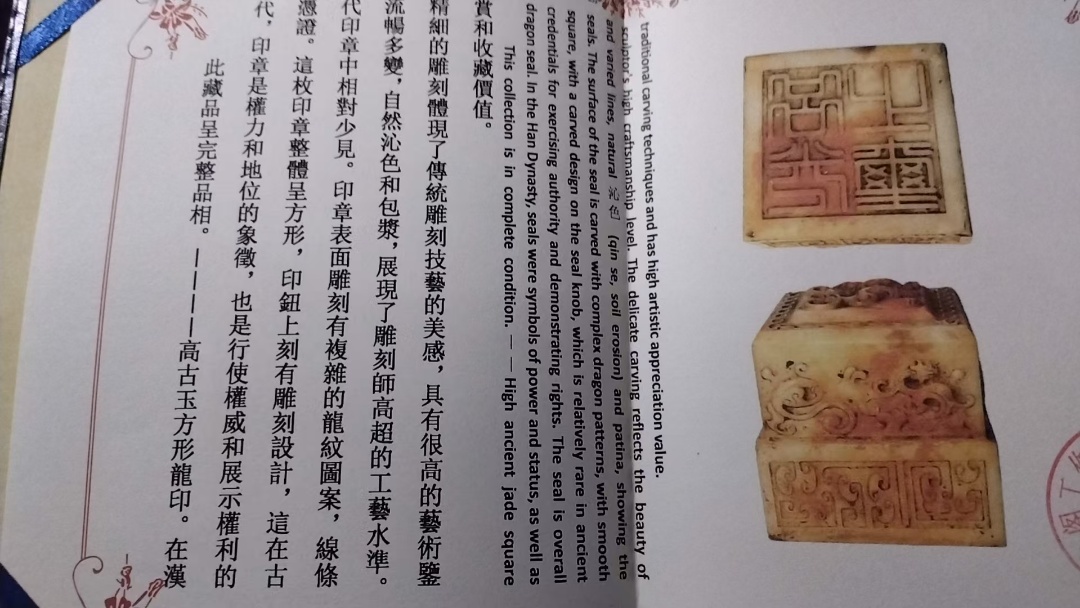 此藏品呈完整品相。————高古玉方形龍印。在漢
代，印章是權力和地位的象徵，也是行使權威和展示權利的
憑證。這枚印章整體呈方形，印鈕上刻有雕刻設計，這在古
代印章中相對少見。印章表面雕刻有複雜的龍紋圖案，線條
流暢多變，自然沁色和包漿，展現了雕刻師高超的工藝水準。
精細的雕刻體現了傳統雕刻技藝的美感，具有很高的藝術鑒
賞和收藏價值。
This collection is in complete condition. —— High ancient jade square
dragon seal. In the Han Dynasty, seals were symbols of power and status, as well as
credentials for exercising authority and demonstrating rights. The seal is overall
square, with a carved design on the seal knob, which is relatively rare in ancient
seals. The surface of the seal is carved with complex dragon patterns, with smooth
and varied lines, natural 沁色 (qin se, soil erosion) and patina, showing the
sculptor's high craftsmanship level. The delicate carving reflects the beauty of
traditional carving techniques and has high artistic appreciation value.